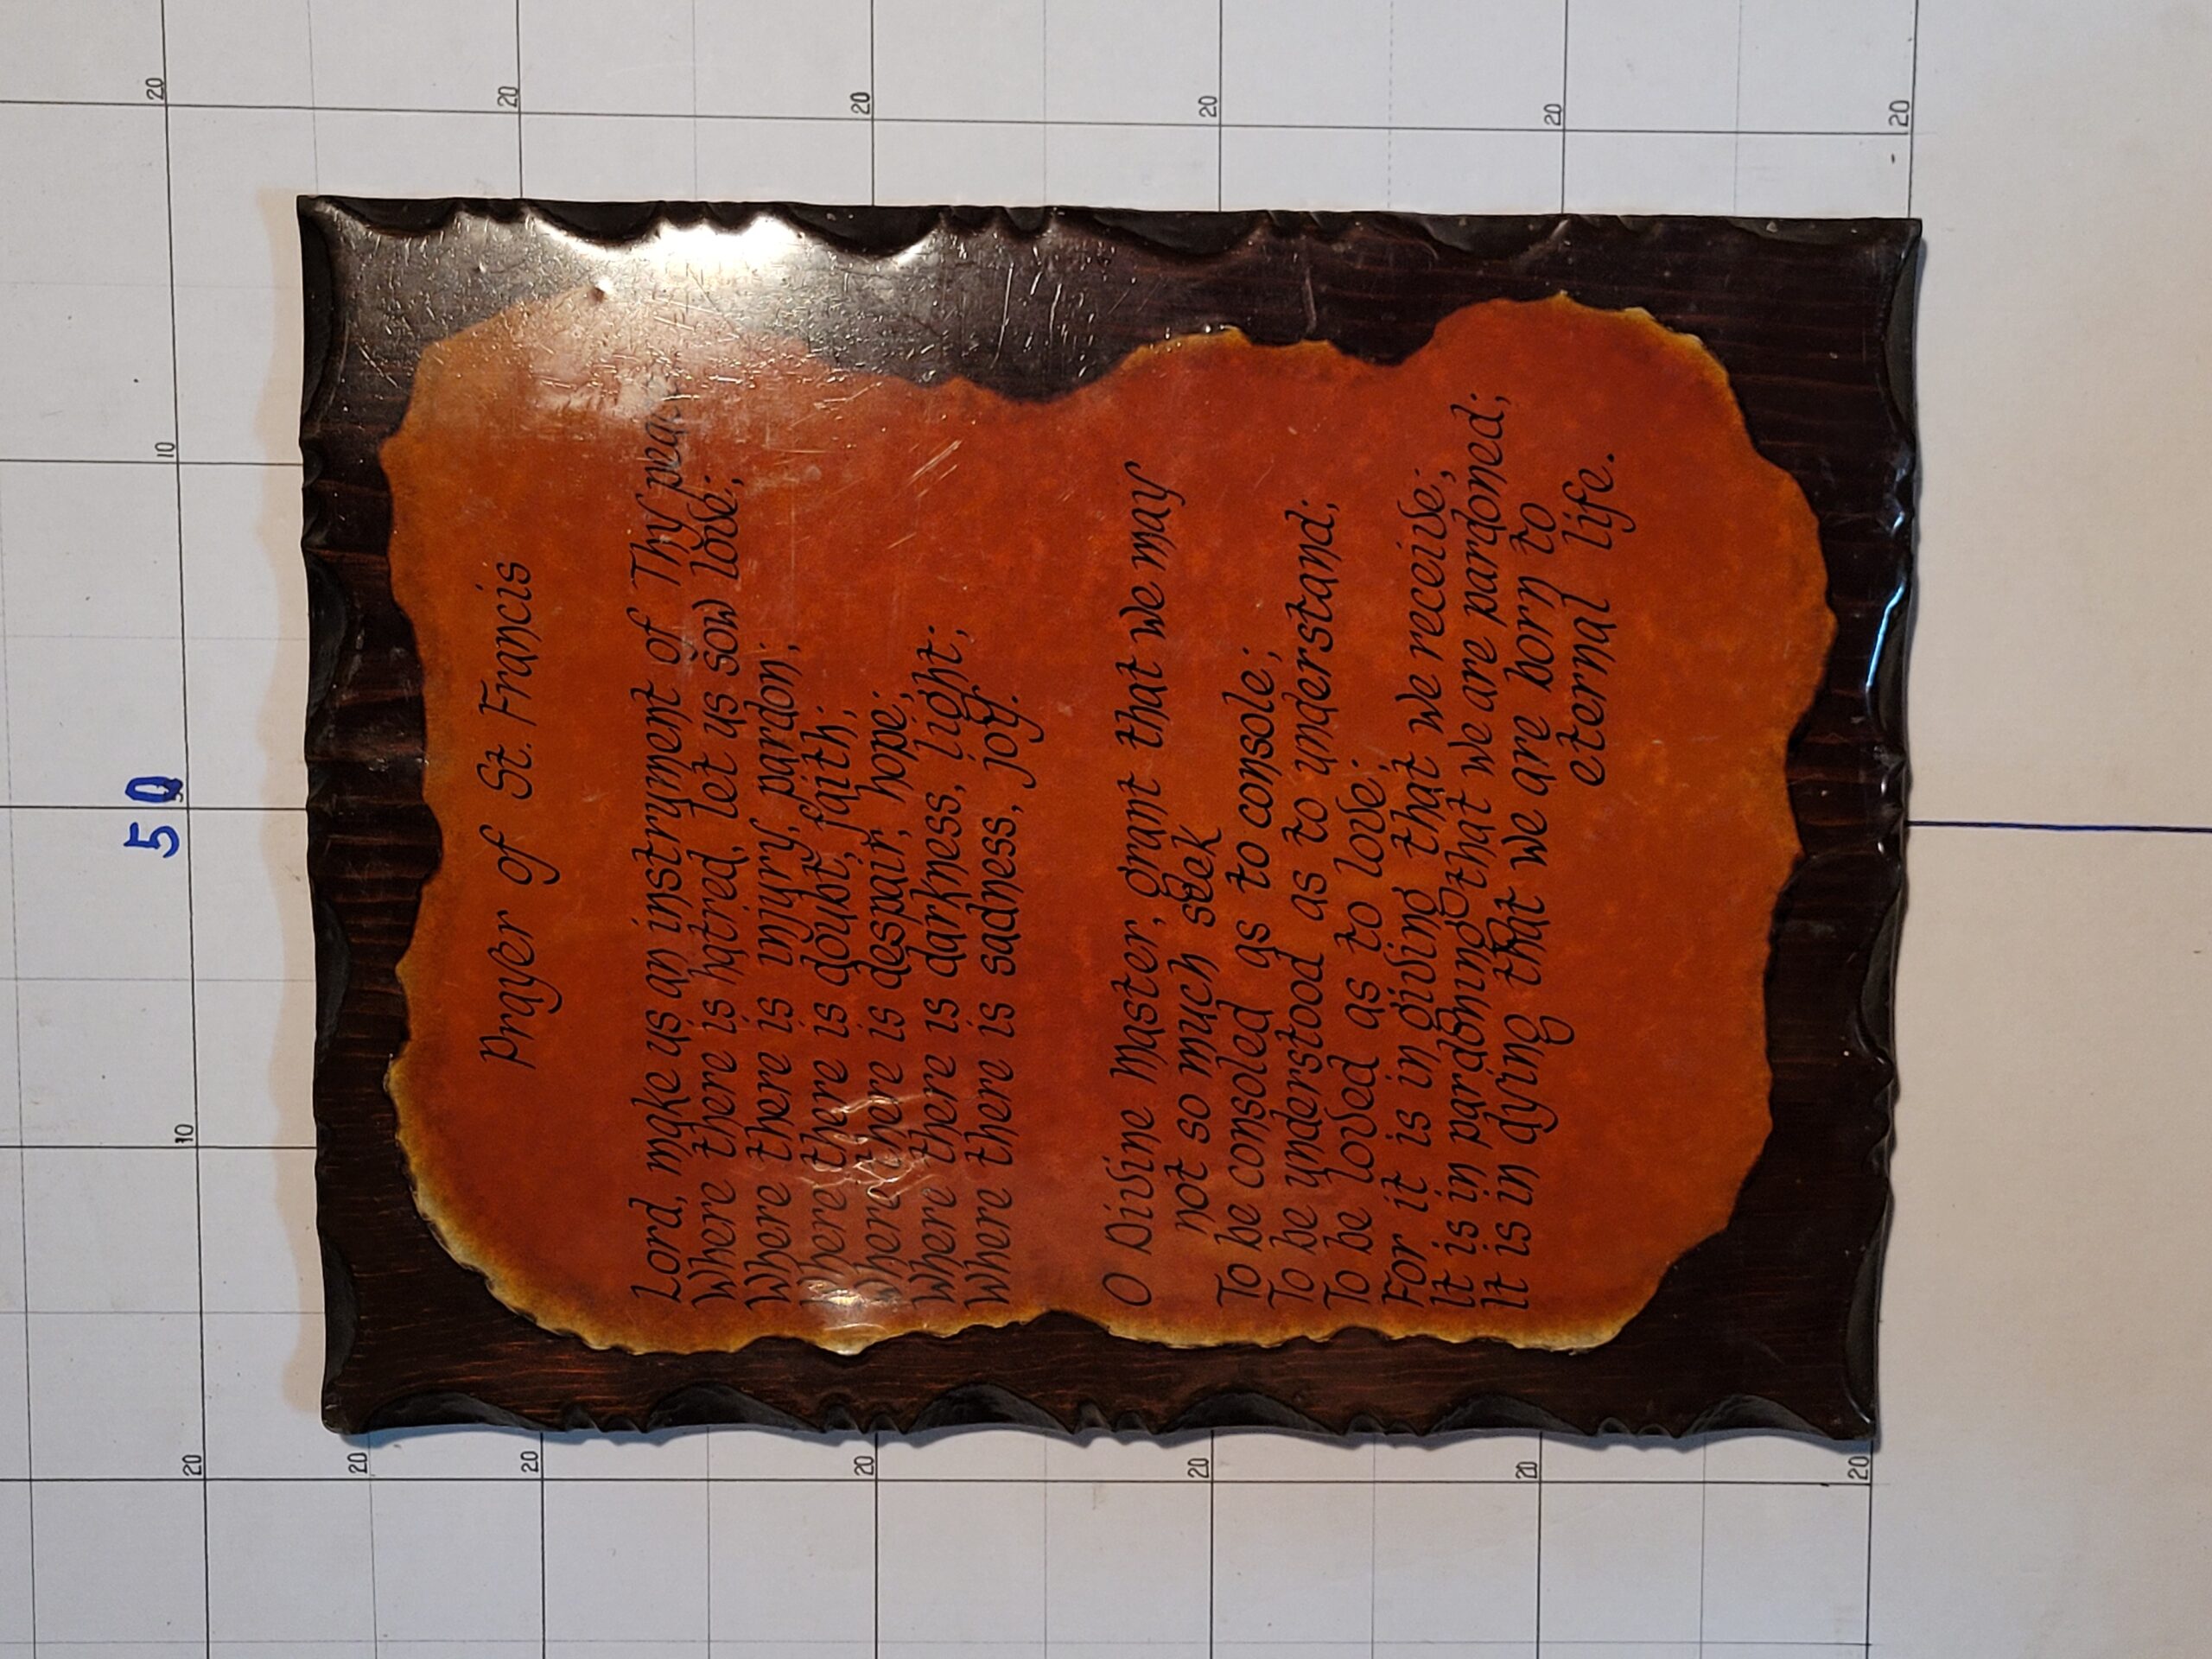 Prayer of St. Francis
Lord, make us an instrument of Thy
Where there is hatred, let us sow love;
Where there is injury, pardon;
Where there is doubt, faith;
Where there is despair, hope;
Where there is darkness, light;
Where there is sadness, joy.
O Divine Master, grant that we may
not so much seek
To be consoled as to console;
To be understood as to understand;
To be loved as to love;
For it is in giving that we receive;
It is in pardoning that we are pardoned;
It is in dying that we are born to
eternal life.
20
20
20
20
20
20
10
50
10
20
20
20
20
20
20
20